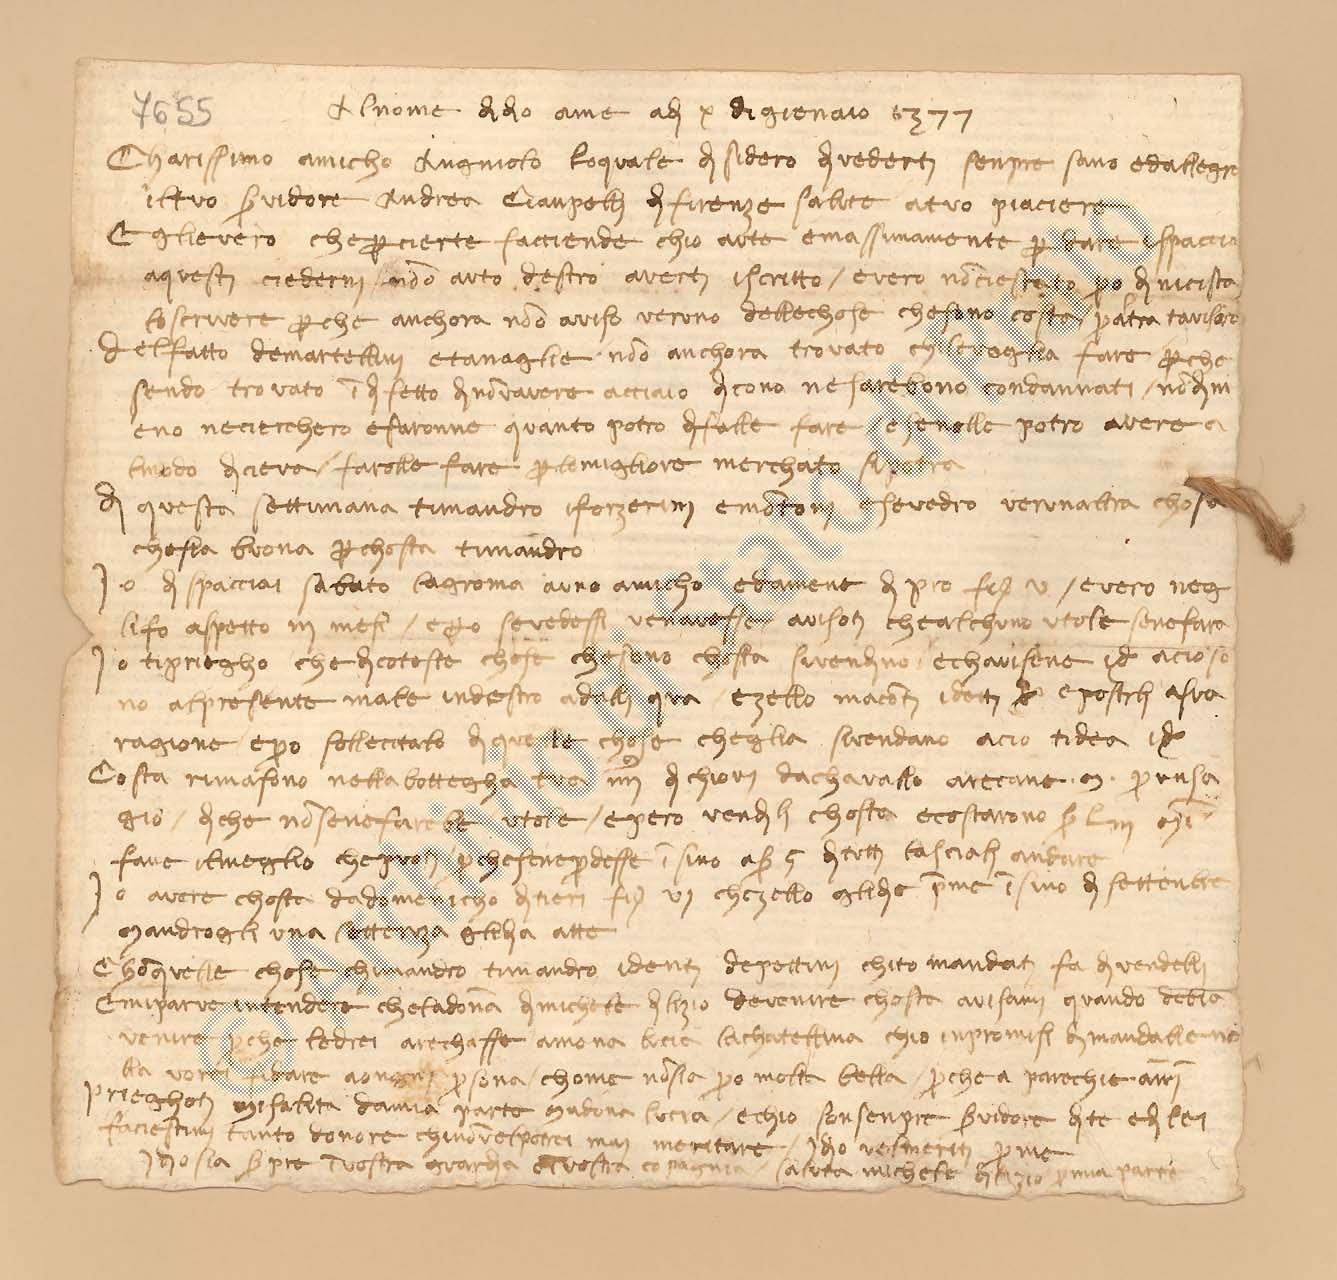 7655
Al nome di dio ame adi x di gienaio 1377
Charissimo amicho Angniolo loquale disidero divederti senpre sano edallegro
iltuo servidore Andrea Cianpelli di firenze salute atuo piaciere
Eglievero chepercierte facciende chio avte emassimamente per dare ispaccio
aquesti ciederni no avto destro averti iscritto / evero nonciestato po dinicista
loscrivere perche anchora no aviso veruno dellechose chesono costa peraltra tavisaro
delfatto demartellini etanaglie no anchora trovato chilevoglia fare perche
sendo trovato i difetto dinonavere acciaio dicono nesarebono condannati / nondim
eno neciercchero efaronne quanto potro difalle fare / esenolle potro avere a
lmodo diciera / farolle fare perlomigliore merchato sipotra
di questa settimana timandro iforzerini emontoni esevedro verunaltra chosa
chesia buona perchosta timandro
Io dispacciai sabato lagroma auno amicho edamene di pro fio v / evero neg
lifo aspetto iii mesi / epero sevedessi venavesse avisoti chealchuno utole senefara
Io tipriegho chedicoteste chose chesono chosta sivendino / echavisene id acioso
no alpresente male indestro adalli qua / ezello maconti identi epostoli asua
ragione / epero sollecitalo diquelle chose cheglia sivendano acio tidea id
Costa rimasono nellabottegha tua iiii dichiovi dachavallo arecane m perusa
gio / diche nonsenefarebe utole / epero vendili chosta ecostarono s Liii
fane ilmeglio chepuoi / percheseneperdesse isino as 5 ditutti lasciali andare
Io avere chosta dadomenicho dicieri fio vi chezello glidie perme isino di settenbre
mandrogli una letterza glidia atte
Chonquelle chose chimandro timandro identi depettini chito mandati fa divendelli
Emiparve intendere cheladonna dimichele dilizio devenire chosta avisami quando debia
venire perche ledrei arechasse amona lucia lachatellina chio inpromisi dimandalle no
lla vorei fidare aongni persona / chome nonsia pero molto bella / perche a parechie anni
prieghoti misaluta damia parte madona lucia / echio sonsenpre servidore dite edilei
faciestimi tanto donore chinonvelpotrei mai meritare / Idio velmeriti perme
Idio sia senpre ivostra guardia e ivostra conpagnia / saluta michele dilizio permia parte
© Archivio di Stato di Prato